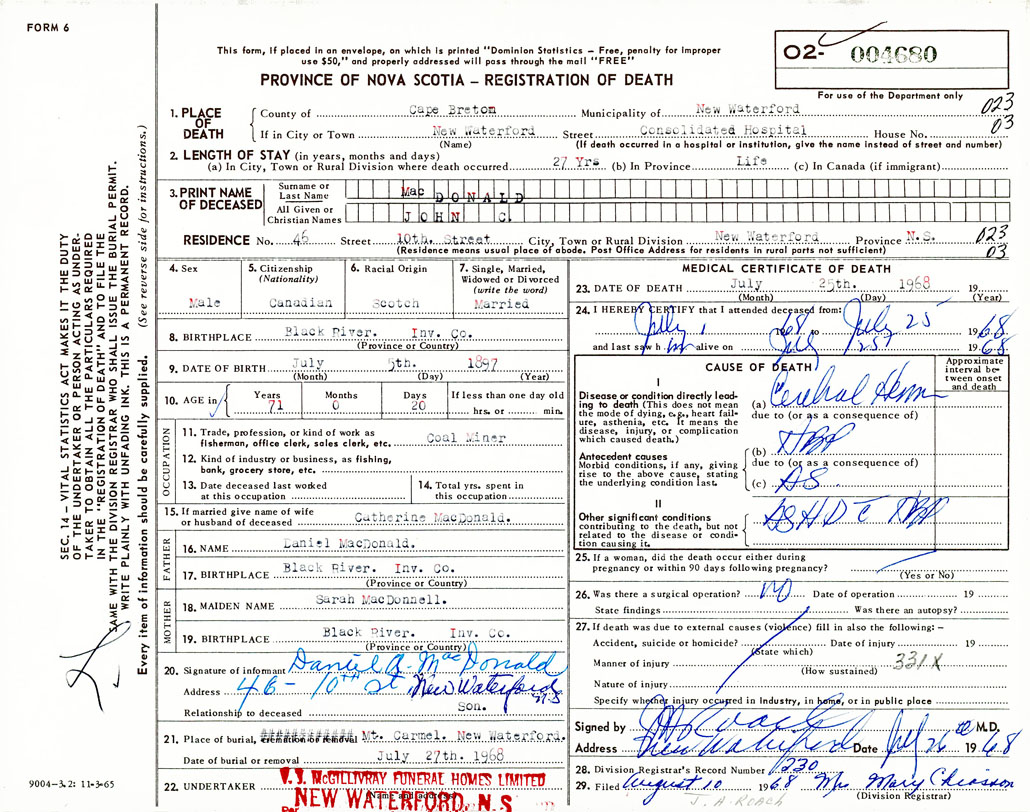 FORM 6
This form, if placed in an envelope, on which is printed "Dominion Statistics – Free, penalty for improper
use $50," and properly addressed will pass through the mail "FREE"
PROVINCE OF NOVA SCOTIA – REGISTRATION OF DEATH
02- 004680
For use of the Department only
1. PLACE OF DEATH
County of Cape Breton Municipality of New Waterford 023
If in City or Town New Waterford Street Consolidated Hospital House No. 03
(Name) (If death occurred in a hospital or institution, give the name instead of street and number)
2. LENGTH OF STAY (in years, months and days)
(a) In City, Town or Rural Division where death occurred 27 Yrs (b) In Province Life (c) In Canada (if immigrant)
3. PRINT NAME OF DECEASED
Surname or Last Name Mac DONALD
All Given or Christian Names JOHN C.
RESIDENCE No. 46 Street 10th. Street City, Town or Rural Division New Waterford Province N.S. 023
(Residence means usual place of abode. Post Office Address for residents in rural parts not sufficient) 03
4. Sex
Male
5. Citizenship
(Nationality)
Canadian
6. Racial Origin
Scotch
7. Single, Married,
Widowed or Divorced
(write the word)
Married
8. BIRTHPLACE Black River. Inv. Co.
(Province or Country)
9. DATE OF BIRTH July 5th. 1897
(Month) (Day) (Year)
10. AGE in
Years Months Days If less than one day old
71 0 20 hrs. or min.
OCCUPATION
11. Trade, profession, or kind of work as
fisherman, office clerk, sales clerk, etc. Coal Miner
12. Kind of industry or business, as fishing,
bank, grocery store, etc.
13. Date deceased last worked
at this occupation
14. Total yrs. spent in
this occupation
15. If married give name of wife
or husband of deceased Catherine MacDonald.
FATHER
16. NAME Daniel MacDonald.
17. BIRTHPLACE Black River. Inv. Co.
(Province or Country)
MOTHER
18. MAIDEN NAME Sarah MacDonnell.
19. BIRTHPLACE Black River. Inv. Co.
(Province or Country)
20. Signature of informant Daniel A. MacDonald
Address 46 - 10th St New Waterford N.S
Relationship to deceased Son.
21. Place of burial, cremation or removal Mt. Carmel. New Waterford.
Date of burial or removal July 27th. 1968
22. UNDERTAKER V. J. McGILLIVRAY FUNERAL HOMES LIMITED
(Name and address)
Per NEW WATERFORD, N.S
MEDICAL CERTIFICATE OF DEATH
23. DATE OF DEATH July 25th. 1968 19
(Month) (Day) (Year)
24. I HEREBY CERTIFY that I attended deceased from:
July 1 1968 to July 25 1968
and last saw him alive on July 25 1968
CAUSE OF DEATH
Approximate
interval be-
tween onset
and death
I
Disease or condition directly lead-
ing to death (This does not mean
the mode of dying, e.g., heart fail-
ure, asthenia, etc. It means the
disease, injury, or complication
which caused death.)
(a) Cerebral Hem
due to (or as a consequence of)
Antecedent causes
Morbid conditions, if any, giving
rise to the above cause, stating
the underlying condition last.
(b) HBP
due to (or as a consequence of)
(c) AS
II
Other significant conditions
contributing to the death, but not
related to the disease or condi-
tion causing it.
ASHD c HBP
25. If a woman, did the death occur either during
pregnancy or within 90 days following pregnancy?
(Yes or No)
26. Was there a surgical operation? no Date of operation 19
State findings Was there an autopsy?
27. If death was due to external causes (violence) fill in also the following:–
Accident, suicide or homicide? Date of injury 19
(State which)
Manner of injury 331X
(How sustained)
Nature of injury
Specify whether injury occurred in Industry, in home, or in public place
Signed by M.D.
Address New Waterford Date July 26th 1968
28. Division Registrar's Record Number 1230
29. Filed August 10 1968 Mrs Mary Chiasson
(Division Registrar)
J. A. ROACH
SEC. 14 – VITAL STATISTICS ACT MAKES IT THE DUTY
OF THE UNDERTAKER OR PERSON ACTING AS UNDER-
TAKER TO OBTAIN ALL THE PARTICULARS REQUIRED
IN THE "REGISTRATION OF DEATH" AND TO FILE THE
SAME WITH THE DIVISION REGISTRAR WHO SHALL ISSUE THE BURIAL PERMIT.
WRITE PLAINLY WITH UNFADING INK. THIS IS A PERMANENT RECORD.
Every item of information should be carefully supplied. (See reverse side for instructions.)
9004-3.2: 11-3-65